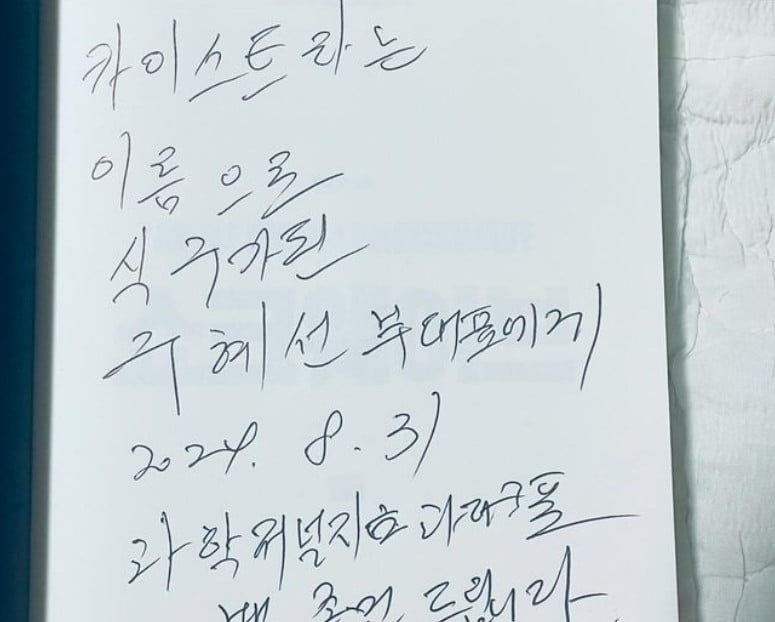 카이스트라는
이름으로
식구가된
구혜선 부대표에게
2024. 8. 31
과학저널지
드립니다